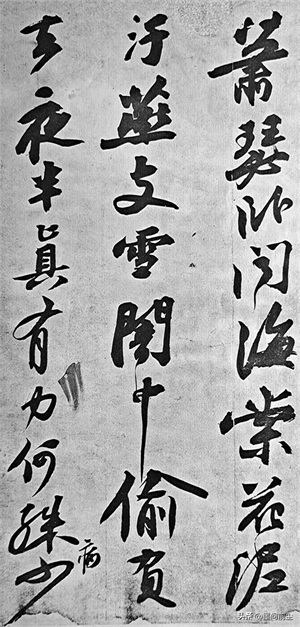 蕭瑟卧聞海棠花泥
汙燕支雪闇中偷負
去夜半真有力何殊少
病